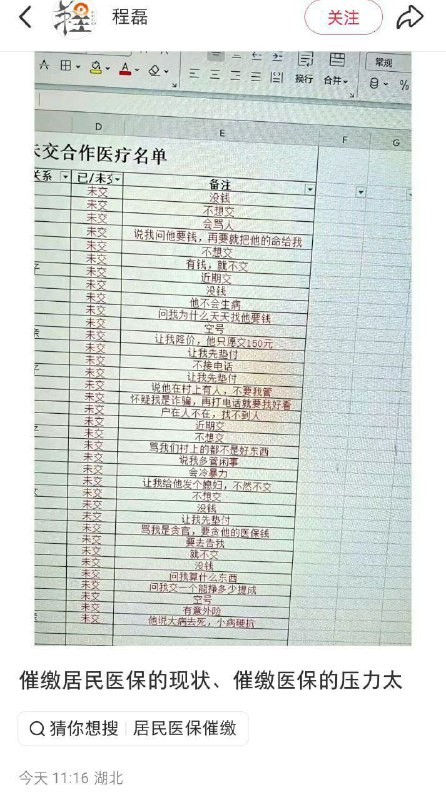 程磊
关注
换行
合并
常规
%
D
E
F
G
未交合作医疗名单
关系
已/未交
备注
未交
没钱
未交
不想交
未交
会骂人
未交
说我问他要钱，再要就把他的命给我
未交
不想交
未交
有钱，就不交
未交
近期交
未交
没钱
未交
他不会生病
未交
问我为什么天天找他要钱
未交
空号
未交
让我降价，他只愿交150元
未交
让我先垫付
未交
不接电话
未交
让我先垫付
未交
说他在村上有人，不要我管
未交
怀疑我是诈骗，再打电话就要我好看
未交
户在人不在，找不到人
未交
近期交
未交
不想交
未交
骂我们村上的都不是好东西
未交
说我多管闲事
未交
会冷暴力
未交
让我给他发个媳妇，不然不交
未交
不想交
未交
没钱
未交
让我先垫付
未交
骂我是贪官，要贪他的医保钱
未交
要去告我
未交
就不交
未交
没钱
未交
问我算什么东西
未交
问我交一个能挣多少提成
未交
空号
未交
有意外险
未交
他说大病去死，小病硬抗
催缴居民医保的现状、催缴医保的压力太
猜你想搜
居民医保催缴
今天 11:16 湖北